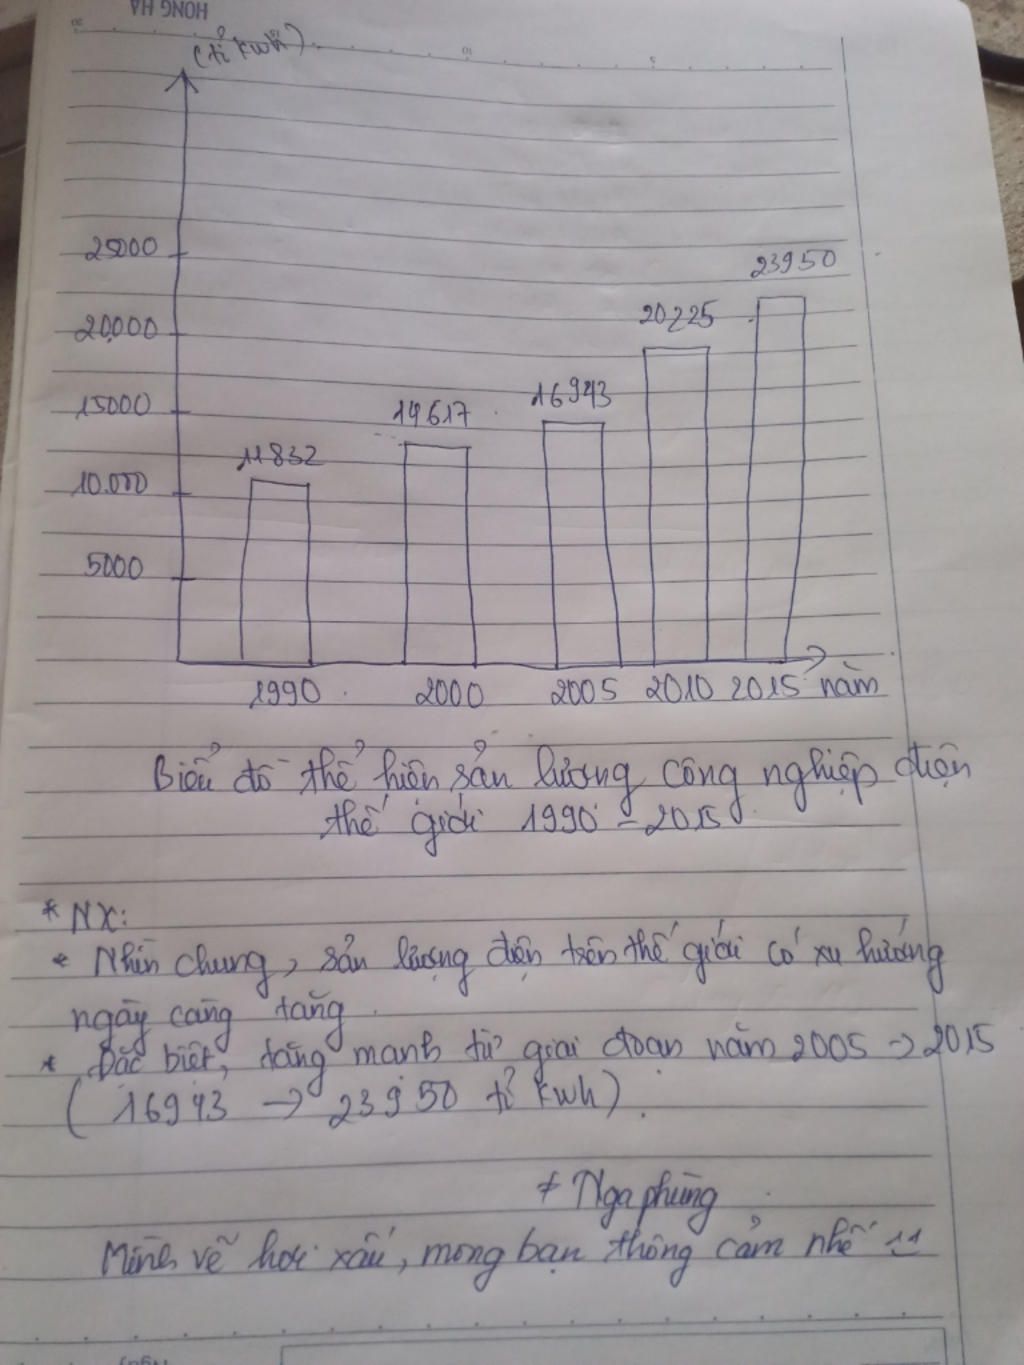 HONG HA
(tỉ kwh)
25000
20.000
15000
10.000
5000
11832
14617
16943
20225
23950
1990
2000
2005
2010
2015
năm
Biểu đồ thể hiện sản lượng công nghiệp điện
thế giới 1990 - 2015
* NX:
* Nhìn chung, sản lượng điện trên thế giới có xu hướng
ngày càng tăng.
* Đặc biệt, tăng mạnh từ giai đoạn năm 2005 → 2015
( 16943 → 23950 tỉ kwh).
+ Nga phùng
Mình vẽ hơi xấu, mong bạn thông cảm nhé